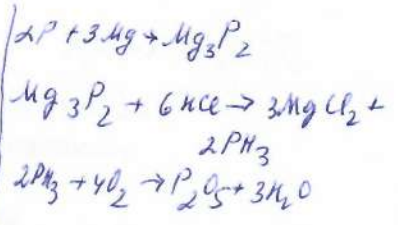 2P + 3Mg → Mg₃P₂
Mg₃P₂ + 6HCl → 3MgCl₂ +
2PH₃
2PH₃ + 4O₂ → P₂O₅ + 3H₂O